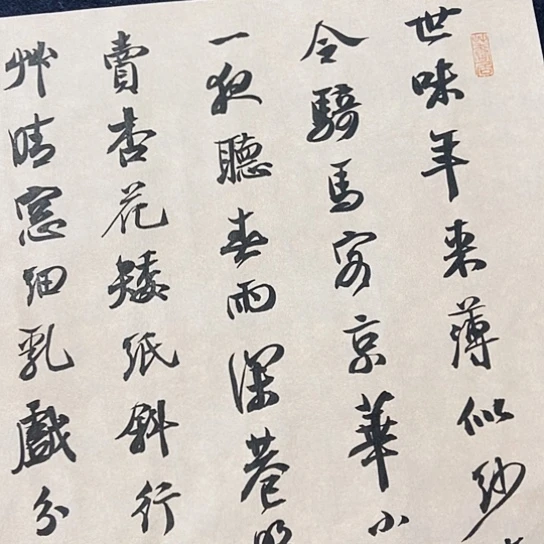 世味年来薄似紗
令騎馬客京華小
一夜聽春雨深巷
賣杏花矮紙斜行
艸晴窓細乳戲分